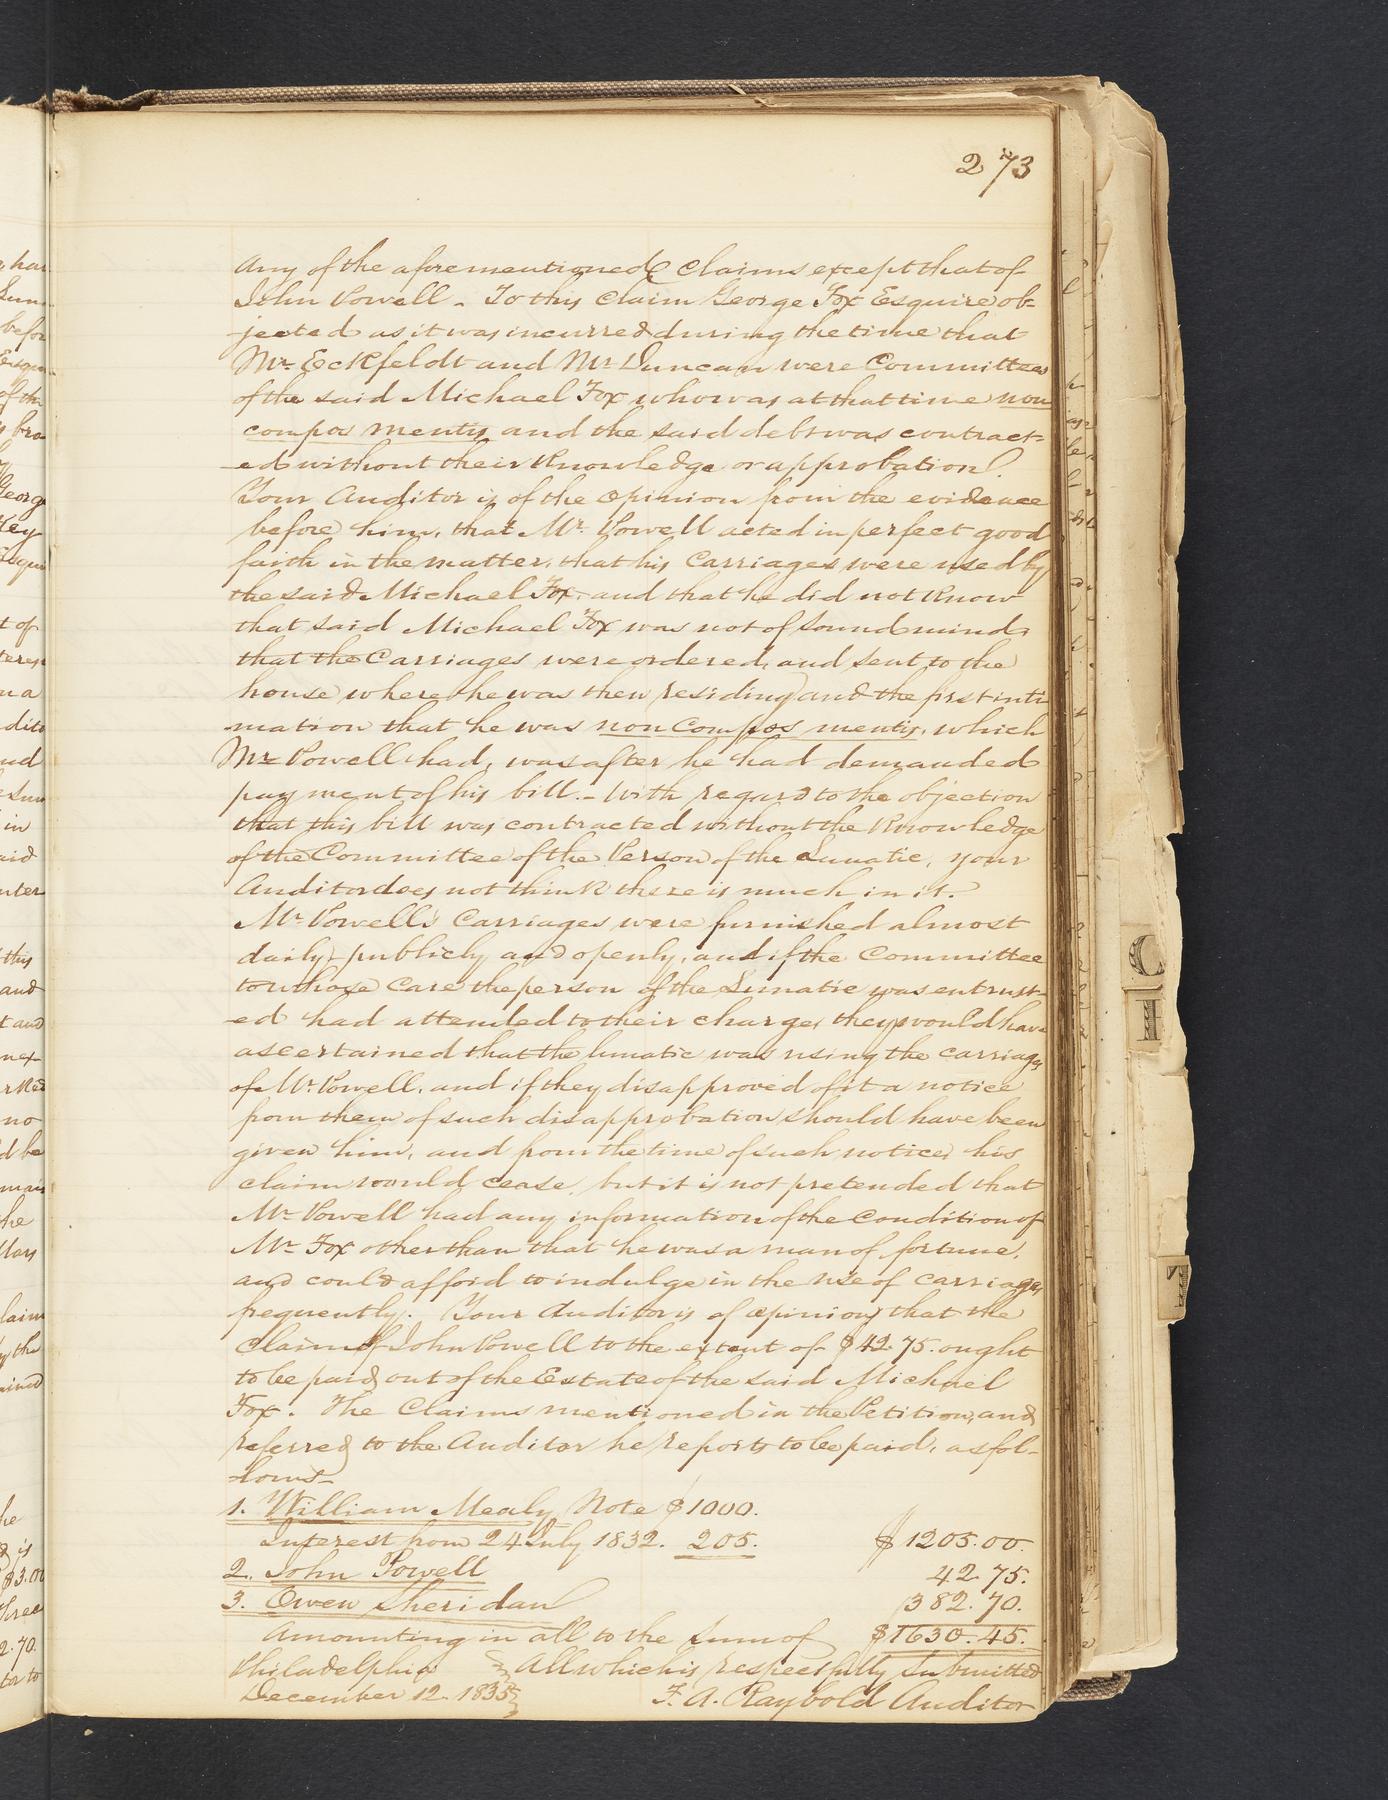 273
any of the aforementioned claims except that of
John Powell - To this claim George Fox Esquire ob-
jected as it was incurred during the time that
Mr. Eckfeldt and Mr Duncan were Committees
of the said Michael Fox who was at that time non
compos mentis and the said debt was contract-
-ed without their knowledge or approbation.
Your Auditor is of the opinion from the evidence
before him, that Mr. Powell acted in perfect good
faith in the matter, that his carriages were used by
the said Michael Fox - and that he did not know
that said Michael Fox was not of sound mind,
that the Carriages were ordered, and sent to the
house where he was then residing and the first inti
mation that he was non compos mentis, which
Mr Powell had, was after he had demanded
payment of his bill. - With regard to the objection
that this bill was contracted without the knowledge
of the Committee of the Person of the Lunatic, your
Auditor does not think there is much in it.
Mr. Powell's Carriages were furnished almost
daily, publicly and openly, and if the Committee
to whose care the person of the Lunatic was entrust-
-ed had attended to their charge, they would have
ascertained that the lunatic was using the carriages
of Mr. Powell, and if they disapproved of it a notice
from them of such disapprobation should have been
given him, and from the time of such notice, his
claim would cease, but it is not pretended that
Mr. Powell had any information of the condition of
Mr. Fox other than that he was a man of fortune,
and could afford to indulge in the use of carriages
frequently. Your Auditor is of opinion that the
claim of John Powell to the extent of $42.75. ought
to be paid out of the Estate of the said Michael
Fox. The Claims mentioned in the Petition, and
referred to the Auditor he reports to be paid, as fol-
-lows-
1. William Mealy Note $1000.
Interest from 24 July 1832. 205. $1205.00.
2. John Powell 42.75.
3. Owen Sheridan 382.70.
Amounting in all to the sum of $1630.45.
Philadelphia All which is respectfully submitted
December 12. 1835 F. A. Raybold Auditor